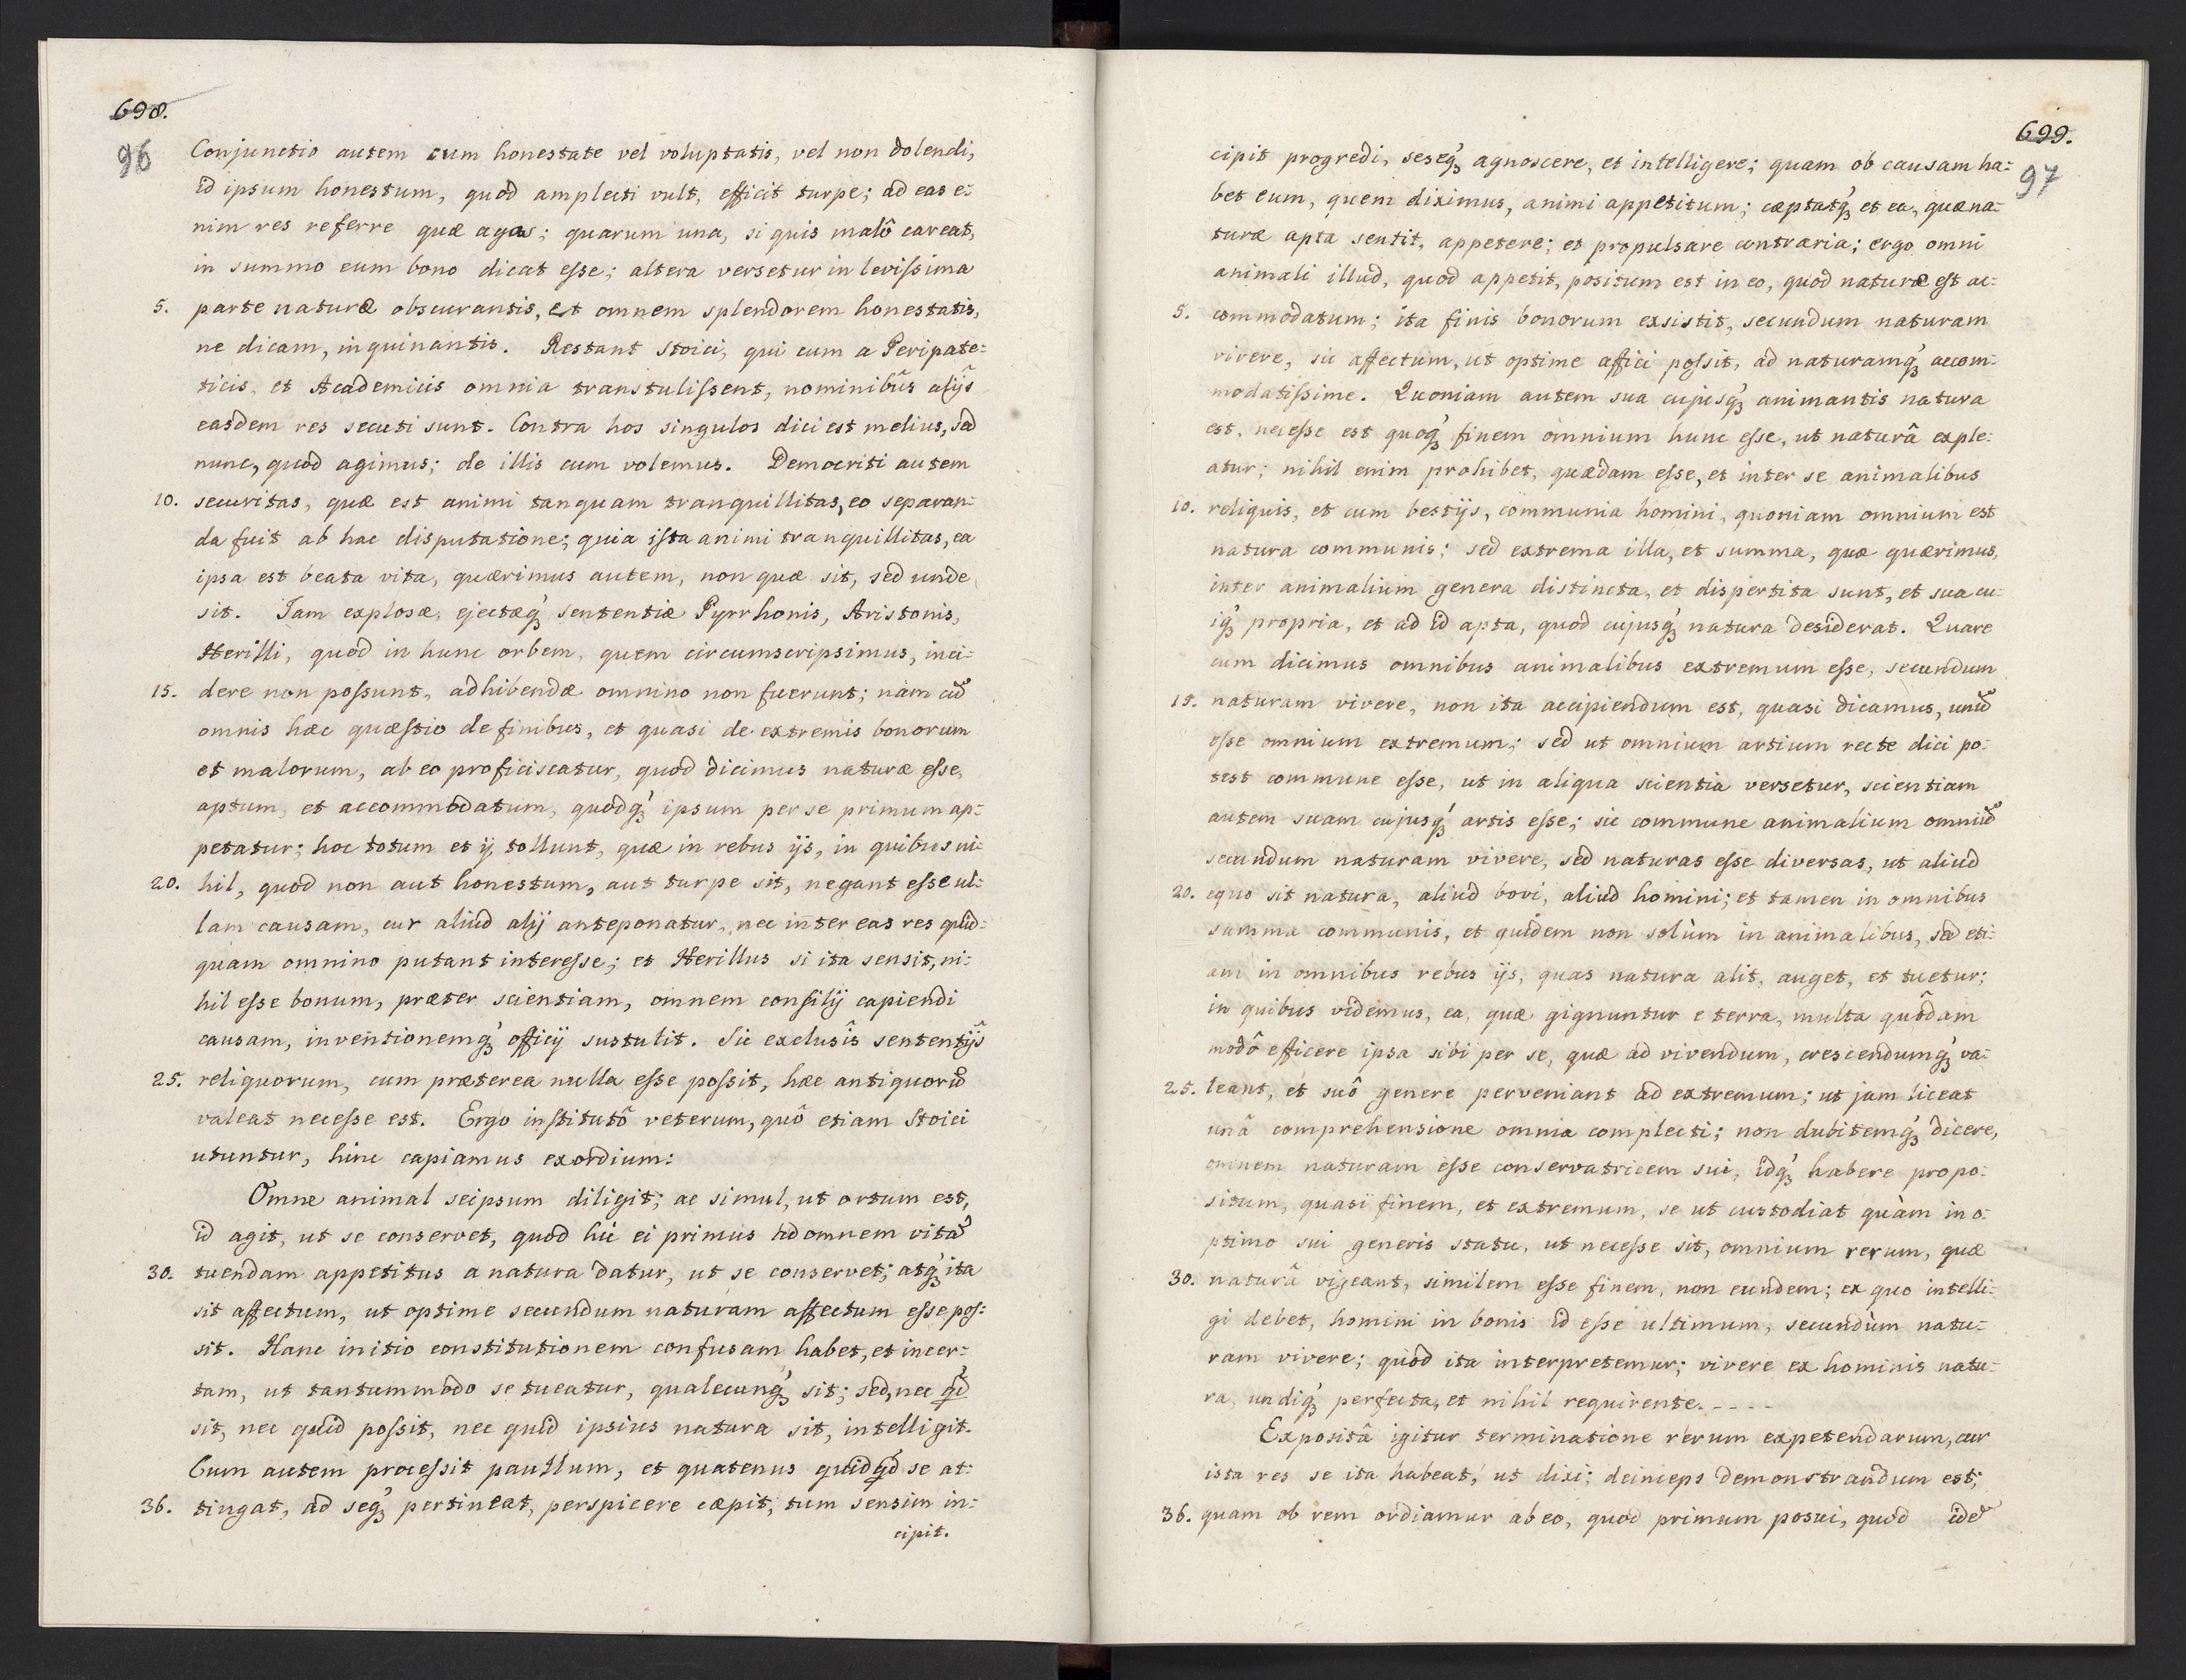 698.
96
Conjunctio autem cum honestate vel voluptatis, vel non dolendi,
id ipsum honestum, quod amplecti vult, efficit turpe; ad eas e=
nim res referre quæ agas; quarum una, si quis malô careat,
in summo eum bono dicat esse; altera versetur in levissima
5. parte naturæ obscurantis, est omnem splendorem honestatis,
ne dicam, inquinantis. Restant Stoici, qui cum a Peripate=
ticis, et Academicis omnia transtulissent, nominibûs alijs
easdem res secuti sunt. Contra hos singulos dici est melius, sed
nunc, quod agimus; de illis cum volemus. Democriti autem
10. securitas, quæ est animi tanquam tranquillitas, eo separan=
da fuit ab hac disputatione; quia ista animi tranquillitas, ea
ipsa est beata vita, quærimus autem, non quæ sit, sed unde
sit. Jam explosæ, ejectæq́ꝫ sententiæ Pyrrhonis, Aristonis,
Herilli, quod in hunc orbem, quem circumscripsimus, inci=
15. dere non possunt, adhibendæ omnino non fuerunt; nàm cū
omnis hæc quæstio de finibus, et quasi de extremis bonorum
et malorum, ab eo proficiscatur, quod dicimus naturæ esse,
aptum, et accommodatum, quodq́ꝫ ipsum per se primum ap=
petatur; hoc totum et ij tollunt, quæ in rebus ijs, in quibus ni=
20. hil, quod non aut honestum, aut turpe sit, negant esse ul=
lam causam, cur aliud alij anteponatur, nec inter eas res quid=
quam omnino putant interesse; et Herillus si ita sensit, ni=
hil esse bonum, præter scientiam, omnem consilij capiendi
causam, inventionemq́ꝫ officij sustulit. Sic exclusîs sententijs
25. reliquorum, cum præterea nulla esse possit, hæc antiquorū
valeat necesse est. Ergo institutô veterum, quô etiam Stoici
utuntur, hinc capiamus exordium:
Omne animal seipsum diligit; ac simul, ut ortum est,
id agit, ut se conservet, quod hic ei primus ad omnem vitā
30. tuendam appetitus a natura datur, ut se conservet; atq́ꝫ ita
sit affectum, ut optime secundum naturam affectum esse pos=
sit. Hanc initio constitutionem confusam habet, et incer=
tam, ut tantummodo se tueatur, qualecunq́ꝫ sit; sed, nec qd
sit, nec quid possit, nec quid ipsius natura sit, intelligit.
Cum autem processit paullum, et quatenus quidqd se at=
36. tingat, ad seq́ꝫ pertineat, perspicere cæpit, tum sensim in=
cipit.
699.
97
cipit progredi, seseq́ꝫ agnoscere, et intelligere; quam ob causam ha=
bet eum, quem diximus, animi appetitum; cæptatq́ꝫ et ea, quæ na=
turæ apta sentit, appetere; et propulsare contraria; ergo omni
animali illud, quod appetit, positum est in eo, quod naturæ est ac=
5. commodatum; ita finis bonorum exsistit, secundum naturam
vivere, sic affectum, ut optime affici possit, ad naturamq́ꝫ accom=
modatissime. Quoniam autem sua cujusq́ꝫ animantis natura
est, necesse est quoq́ꝫ finem omnium hunc esse, ut naturâ exple=
atur; nihil enim prohibet, quædam esse, et inter se animalibus
10. reliquis, et cum bestijs, communia homini, quoniam omnium est
natura communis; sed extrema illa, et summa, quæ quærimus,
inter animalium genera distincta, et dispertita sunt, et sua cu=
iq́ꝫ propria, et ad id apta, quod cujusq́ꝫ natura desiderat. Quare
cum dicimus omnibus animalibus extremum esse, secundum
15. naturam vivere, non ita accipiendum est, quasi dicamus, unū
esse omnium extremum; sed ut omnium artium recte dici po=
test commune esse, ut in aliqua scientia versetur, scientiam
autem suam cujusq́ꝫ artis esse; sic commune animalium omniū
secundum naturam vivere, sed naturas esse diversas, ut aliud
20. equo sit natura, aliud bovi, aliud homini; et tamen in omnibus
summa communis, et quidem non solùm in animalibus, sed eti=
am in omnibus rebus ijs, quas natura alit, auget, et tuetur;
in quibus videmus, ea, quæ gignuntur e terra, multa quôdam
modô efficere ipsa sibi per se, quæ ad vivendum, crescendumq́ꝫ va=
25. leant, et suô genere perveniant ad extremum; ut jam liceat
unâ comprehensione omnia complecti; non dubitemq́ꝫ dicere,
omnem naturam esse conservatricem sui, idq́ꝫ habere propo=
situm, quasi finem, et extremum, se ut custodiat quàm in o=
ptimo sui generis statu, ut necesse sit, omnium rerum, quæ
30. naturâ vigeant, similem esse finem, non eundem; ex quo intelli=
gi debet, homini in bonis id esse ultimum, secundùm natu=
ram vivere; quod ita interpretemur; vivere ex hominis natu=
ra, undiq́ꝫ perfecta, et nihil requirente. - - - -
Expositâ igitur terminatione rerum expetendarum, cur
ista res se ita habeat, ut dixi; deinceps demonstrandum est;
36. quam ob rem ordiamur ab eo, quod primum posui, quod idē